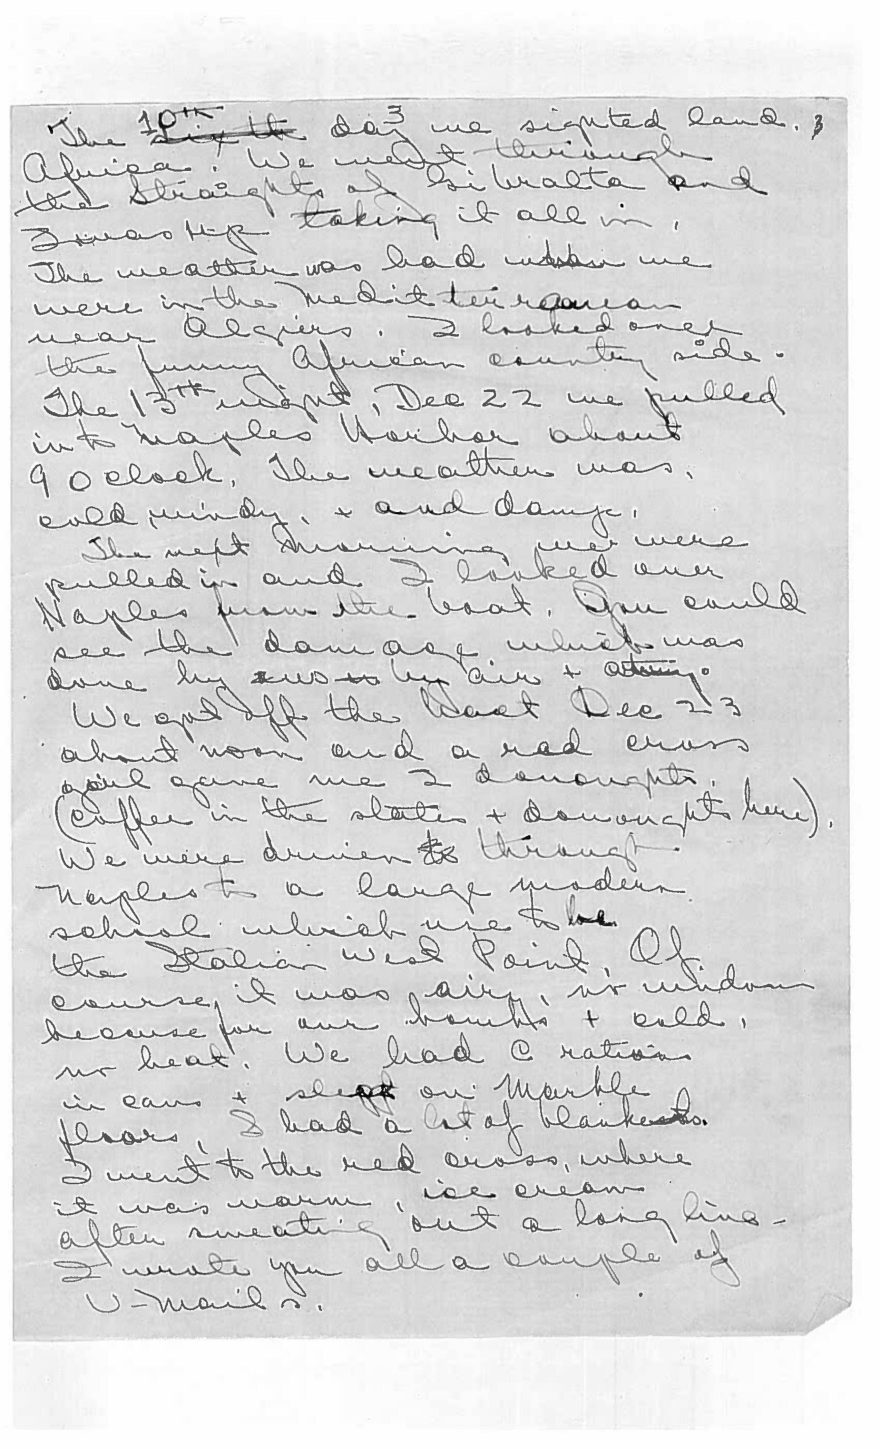 3
The 10th day we sighted land. 3
Africa. We went through
the Straights of Gibralta and
I was up taking it all in.
The weather was bad when we
were in the Mediterranean
near Algiers. I looked over
the funny African country side.
The 13th night, Dec 22 we pulled
into Naples Harbor about
9 oclock. The weather was,
cold, windy, + and damp.
The next morning we were
pulled in and I looked over
Naples from the boat. You could
see the damage which was
done by us by air +
We got off the boat Dec 23
about noon and a red cross
girl gave me 2 donoughts.
(coffee in the states + donoughts here).
We were driven through
Naples to a large modern
school which use to be
the Italian West Point. Of
course, it was airy, no windows
because for our bombs + cold,
no heat. We had C rations
in cans + slept on Marble
floors, I had a lot of blankets.
I went to the red cross, where
it was warm, ice cream
after sweating out a long line -
I wrote you all a couple of
V-Mails.